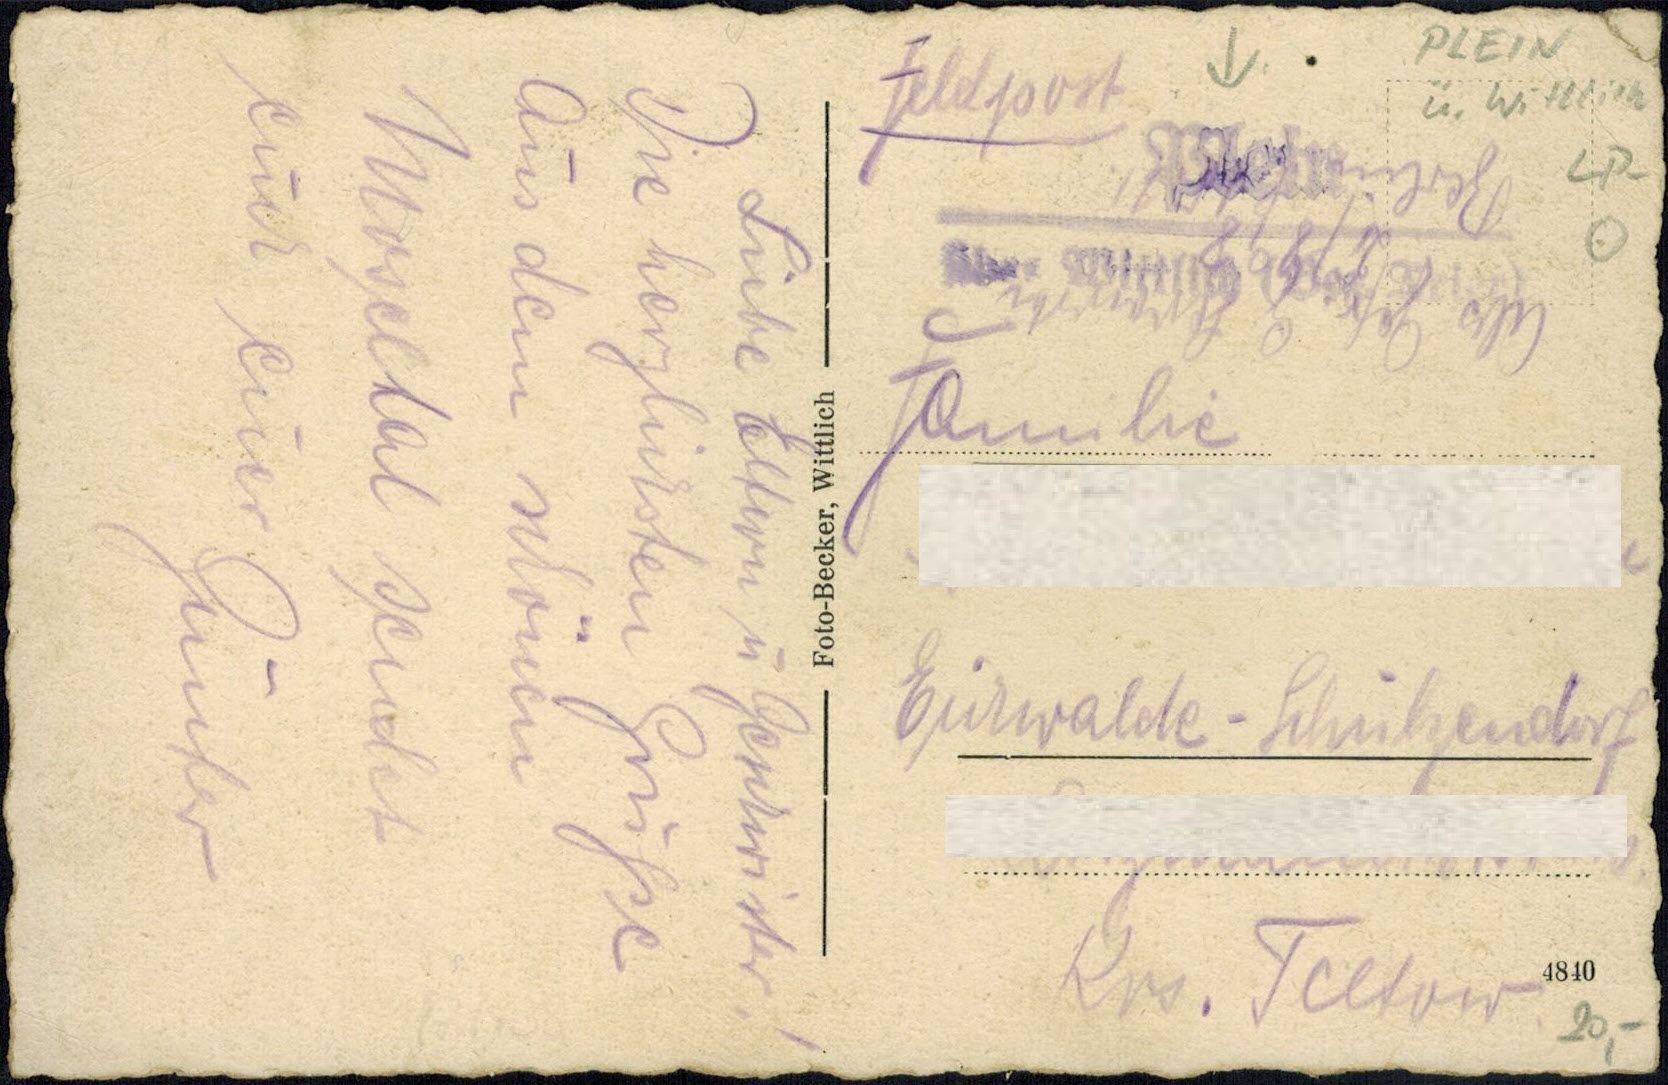 Liebe Eltern u Geschwister!
Die herzlichsten Grüße
Aus dem schönen
Moseltal sendet
euch euer
Günter
Foto-Becker, Wittlich
Feldpost
PLEIN
ü. Wittlich
LP-
O
Plein
über Wittlich (Bez. Trier)
Berlin
Familie
Eichwalde-Schulzendorf
Krs. Teltow
4840
20,-